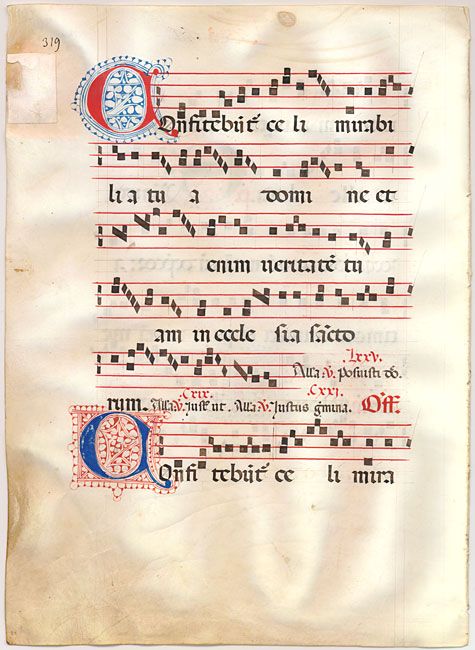 319
Confitebũt̃ ce li mirabi
li a tu a domi ne et
enim ueritatẽ tu
am in eccle sia sãcto
Lxxv.
Alla. ℣. Posuisti do.
rum. Cxix. Alla ℣. Iust̃ ut. Alla ℣. Cxxj. Iustus gmina. Off.
Confi tebũt̃ ce li mira